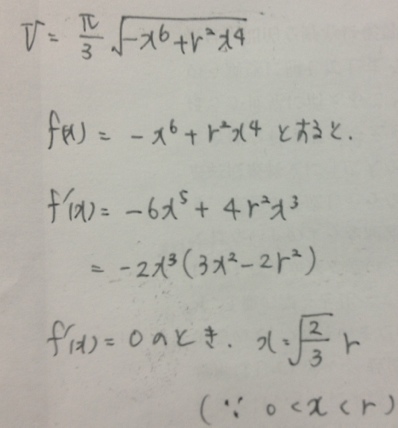 V = π/3 √(-x⁶+r²x⁴)
f(x) = -x⁶+r²x⁴ とすると.
f'(x) = -6x⁵ + 4r²x³
= -2x³(3x²-2r²)
f'(x) = 0 のとき. x = √(2/3) r
(∵ 0<x<r)